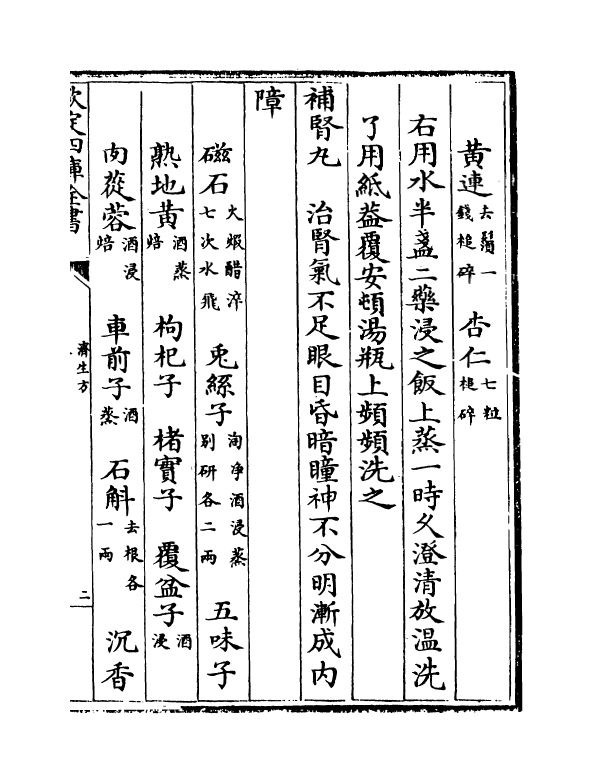 黄連去鬚一錢槌碎 杏仁七粒槌碎
右用水半盞二藥浸之飯上蒸一時久澄清放温洗
了用紙葢覆安頓湯瓶上頻頻洗之
補腎丸 治腎氣不足眼目昏暗瞳神不分明漸成内
障
磁石火煅醋淬七次水飛 兎絲子淘浄酒浸蒸别研各二兩 五味子
熟地黄酒蒸焙 枸杞子 楮實子 覆盆子酒浸
肉蓯蓉酒浸焙 車前子酒蒸 石斛去根各一兩 沉香
欽定四庫全書
濟生方
二